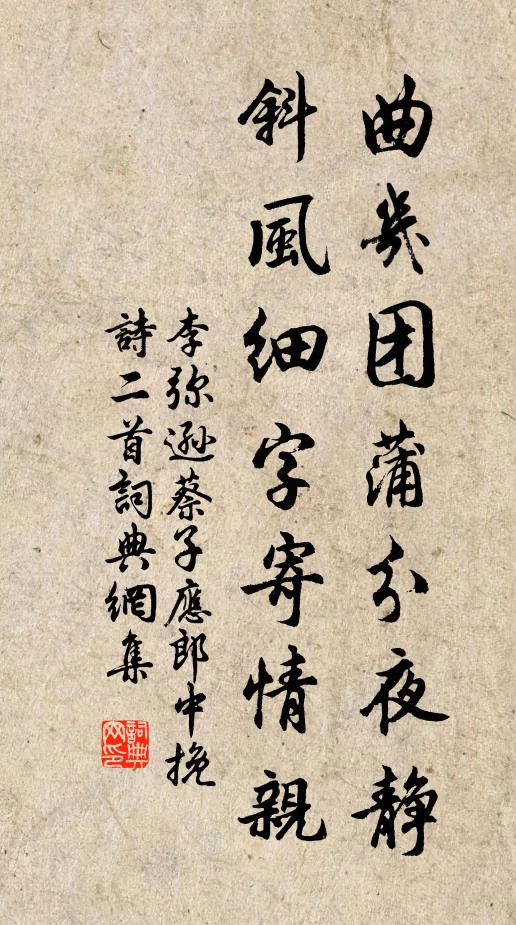 曲几团蒲分夜静
斜風细字寄情親
李弥遜蔡子應郎中挽
詩二首詞典網集
詞典
网印